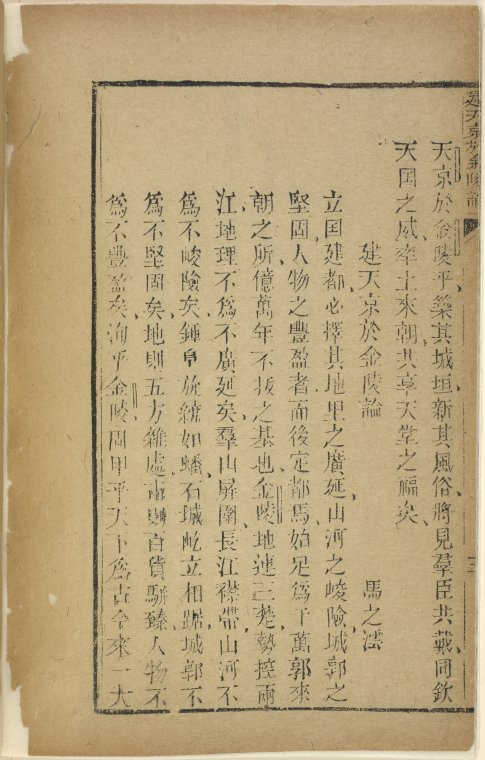 建天京於金陵論
天京於金陵乎築其城垣新其風俗將見羣臣共戴同欽
天国之威率土來朝共享天堂之福矣
建天京於金陵論 馬之沄
立国建都必擇其地里之廣延山河之峻險城郭之
堅固人物之豐盈者而後定都焉始足爲千萬郭來
朝之所億萬年不拔之基也金陵地連三楚勢控兩
江地理不爲不廣延矣羣山屏圍長江襟帶山河不
爲不峻險矣鍾阜旋繞如蟠石城屹立相踞城郭不
爲不堅固矣地則五方雜處市則百貨駢臻人物不
爲不豐盈矣洵乎金陵固甲乎天下爲古今來一大